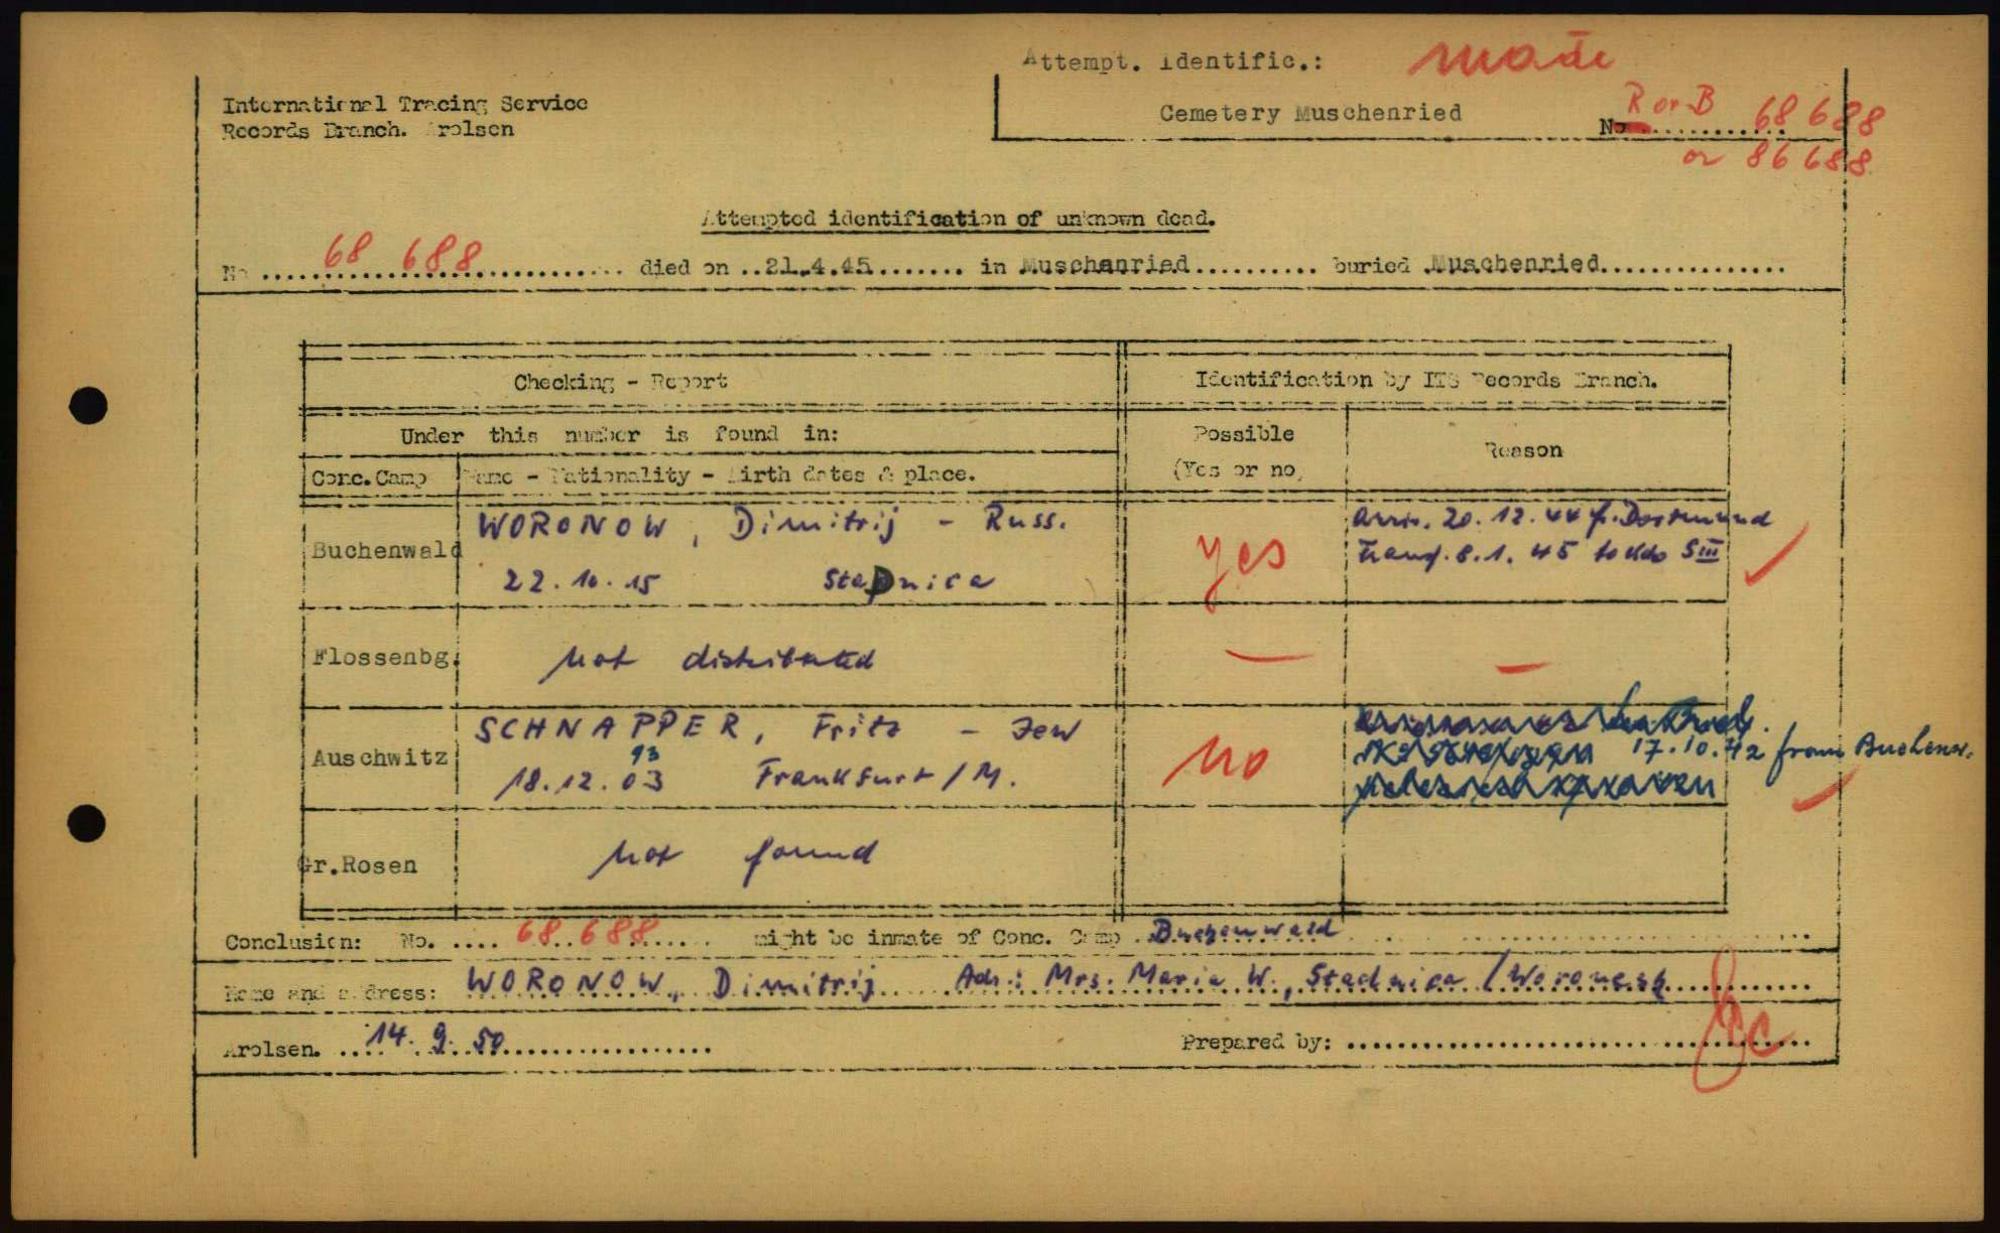 Attempt. Identific.: made
International Tracing Service
Records Branch. Arolsen
Cemetery Muschenried
No R or B 68 688
or 86 688
Attempted identification of unknown dead.
No ..... 68 688 ..... died on ..21.4.45....... in Muschanried.......... buried Muschenried...............
Checking - Report
Identification by ITS Records Branch.
Under this number is found in:
Possible
(Yes or no)
Reason
Conc.Camp
Name - Nationality - Birth dates & place.
Buchenwald
WORONOW, Dimitrij - Russ.
22.10.15 Stadnica
yes
arriv. 20.12.44 f. Dortmund
transf. 8.1.45 to Kdo SIII
Flossenbg.
not distributed
—
—
Auschwitz
SCHNAPPER, Fritz - Jew
93
18.12.03 Frankfurt/M.
no
17.10.42 from Buchenw.
Gr.Rosen
not found
Conclusion: No. .... 68.688 ...... might be inmate of Conc. Camp ..Buchenwald
Name and address: WORONOW, Dimitrij Adr.: Mrs. Maria W., Stadnica / Woronesh
Arolsen. .... 14. 9. 50 ....................
Prepared by: ..............................